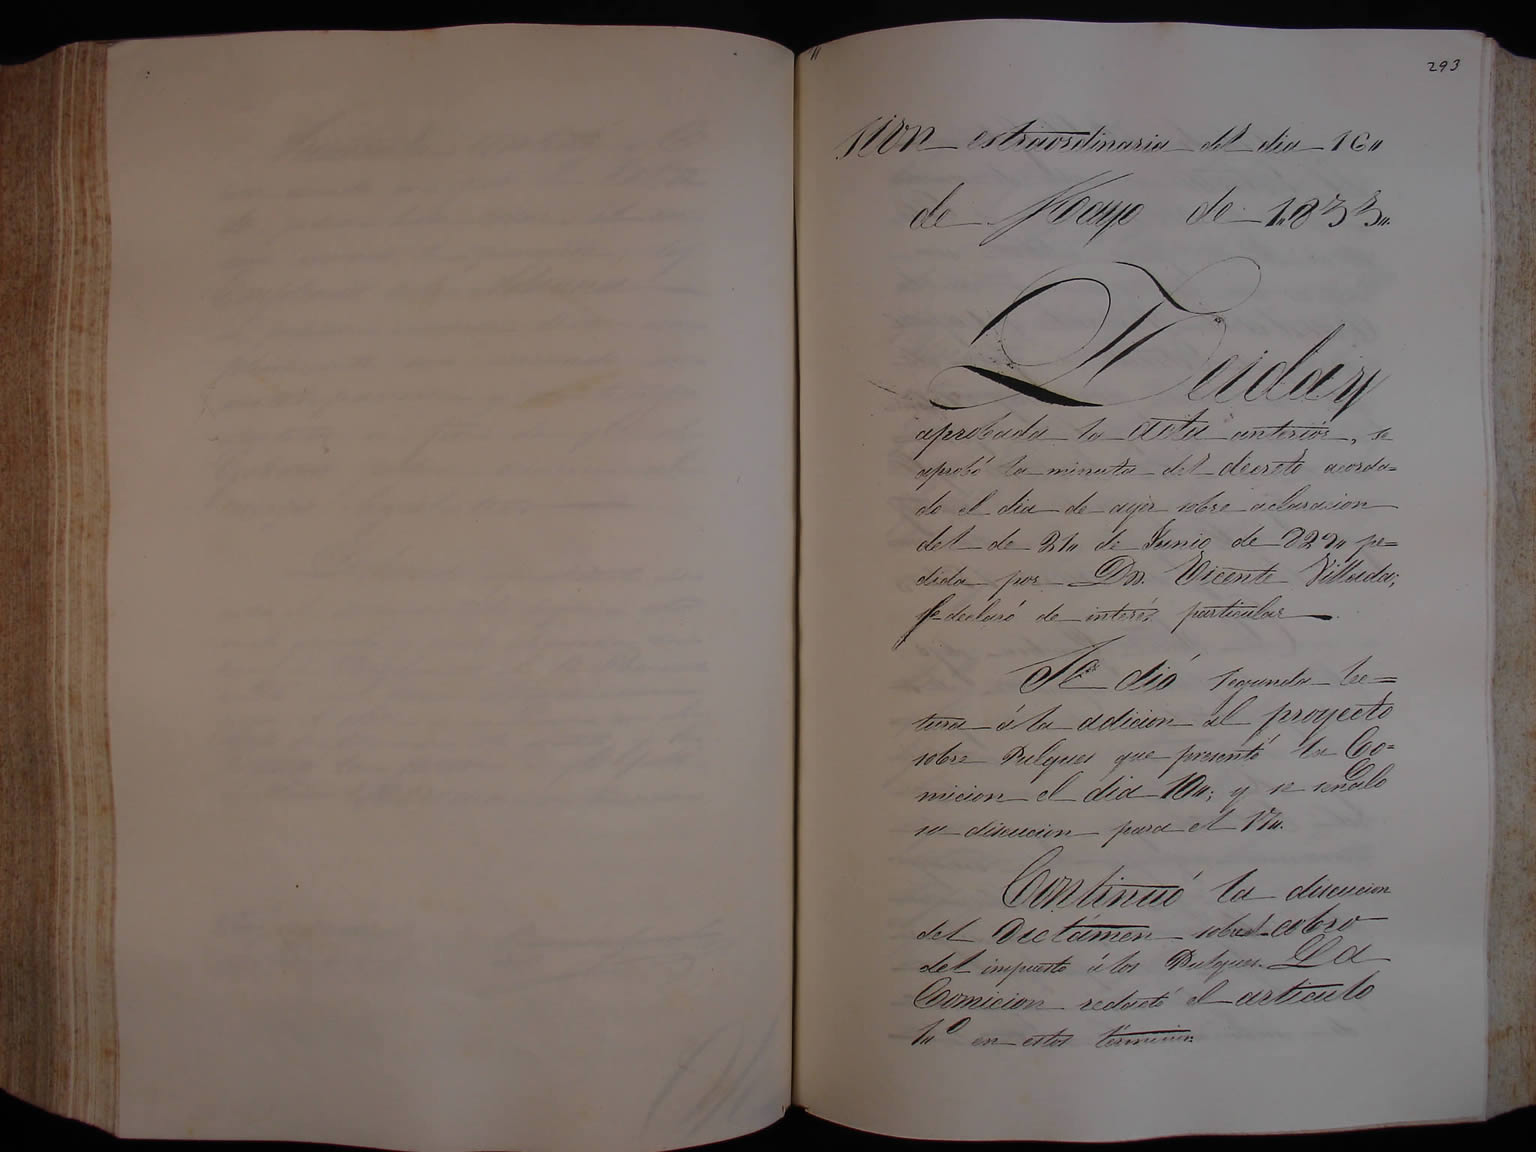 293
sion estraordinaria del dia 16,,
de Mayo de 1,,833,,.
Leida y
aprobada la acta anterior, se
aprobó la minuta del decreto acorda=
do el dia de ayer sobre aclaracion
del de 21,, de Junio de 829,, pe=
dida por Dn. Vicente Villada;
se declaró de interés particular.
Se dió segunda lec=
tura á la adicion al proyecto
sobre Pulques que presentó la Co=
micion el dia 10,,; y se señaló
su discucion para el 17,,.
Continuó la discucion
del Dictámen sobre cobro
del impuesto á los Pulques. La
Comicion redactó el articulo
1,,º en estos terminos: